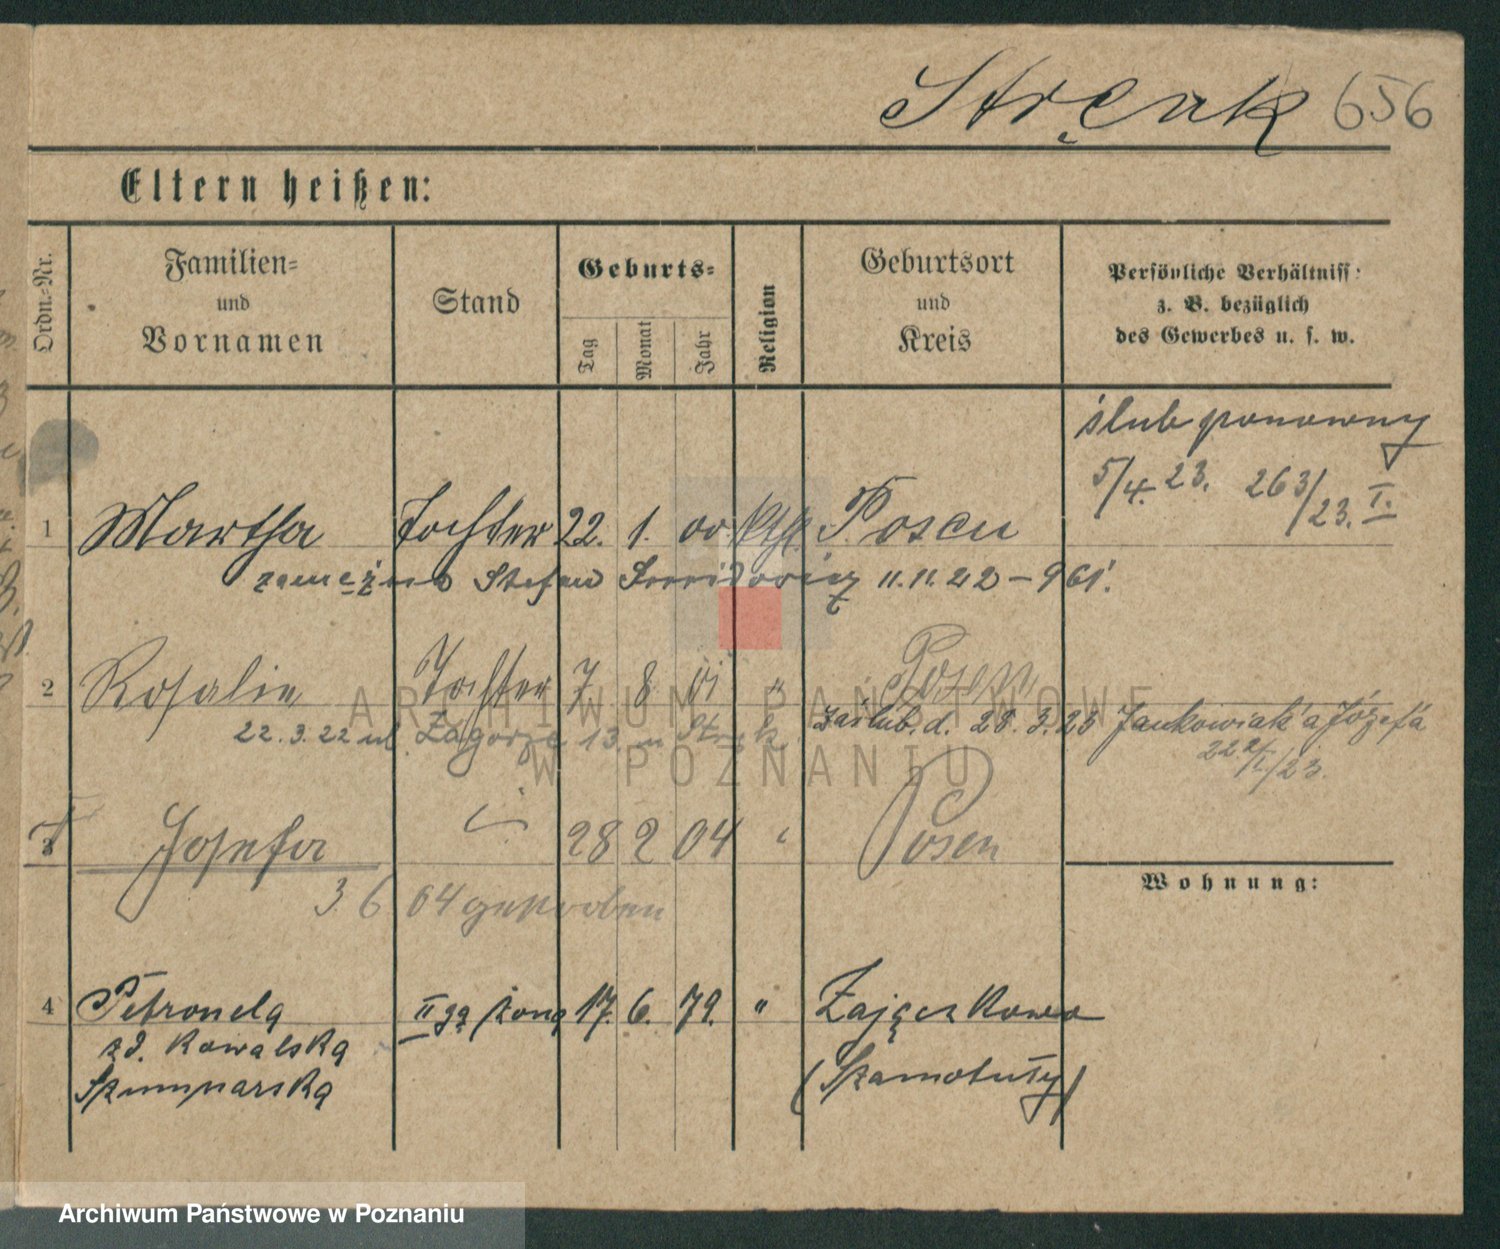 Stręnk 656
Eltern heißen:
Ordn.-Nr.
Familien-
und
Vornamen
Stand
Geburts-
Tag
Monat
Jahr
Religion
Geburtsort
und
Kreis
Persönliche Verhältniss:
z. B. bezüglich
des Gewerbes u. s. w.
ślub ponowny
5/4. 23. 263/23. I.
1 Martha Tochter 22. 1. 00. kth. Posen
zamężna Stefan 11.11.22 – 961.
2 Rosalie Tochter 7 8 01 " Posen
22.3.22 ul. Zagórze 13
zaślub. d. 28.3.23 Jankowiak'a Józef'a
3 Josefa 28 2 04 " Posen
3 6 04 gestorben
Wohnung:
4 Petronela IIga żona 17. 6. 79. " Zajączkowo
zd. Kowalska
(Szamotuły)
ARCHIWUM PAŃSTWOWE
W POZNANIU
Archiwum Państwowe w Poznaniu